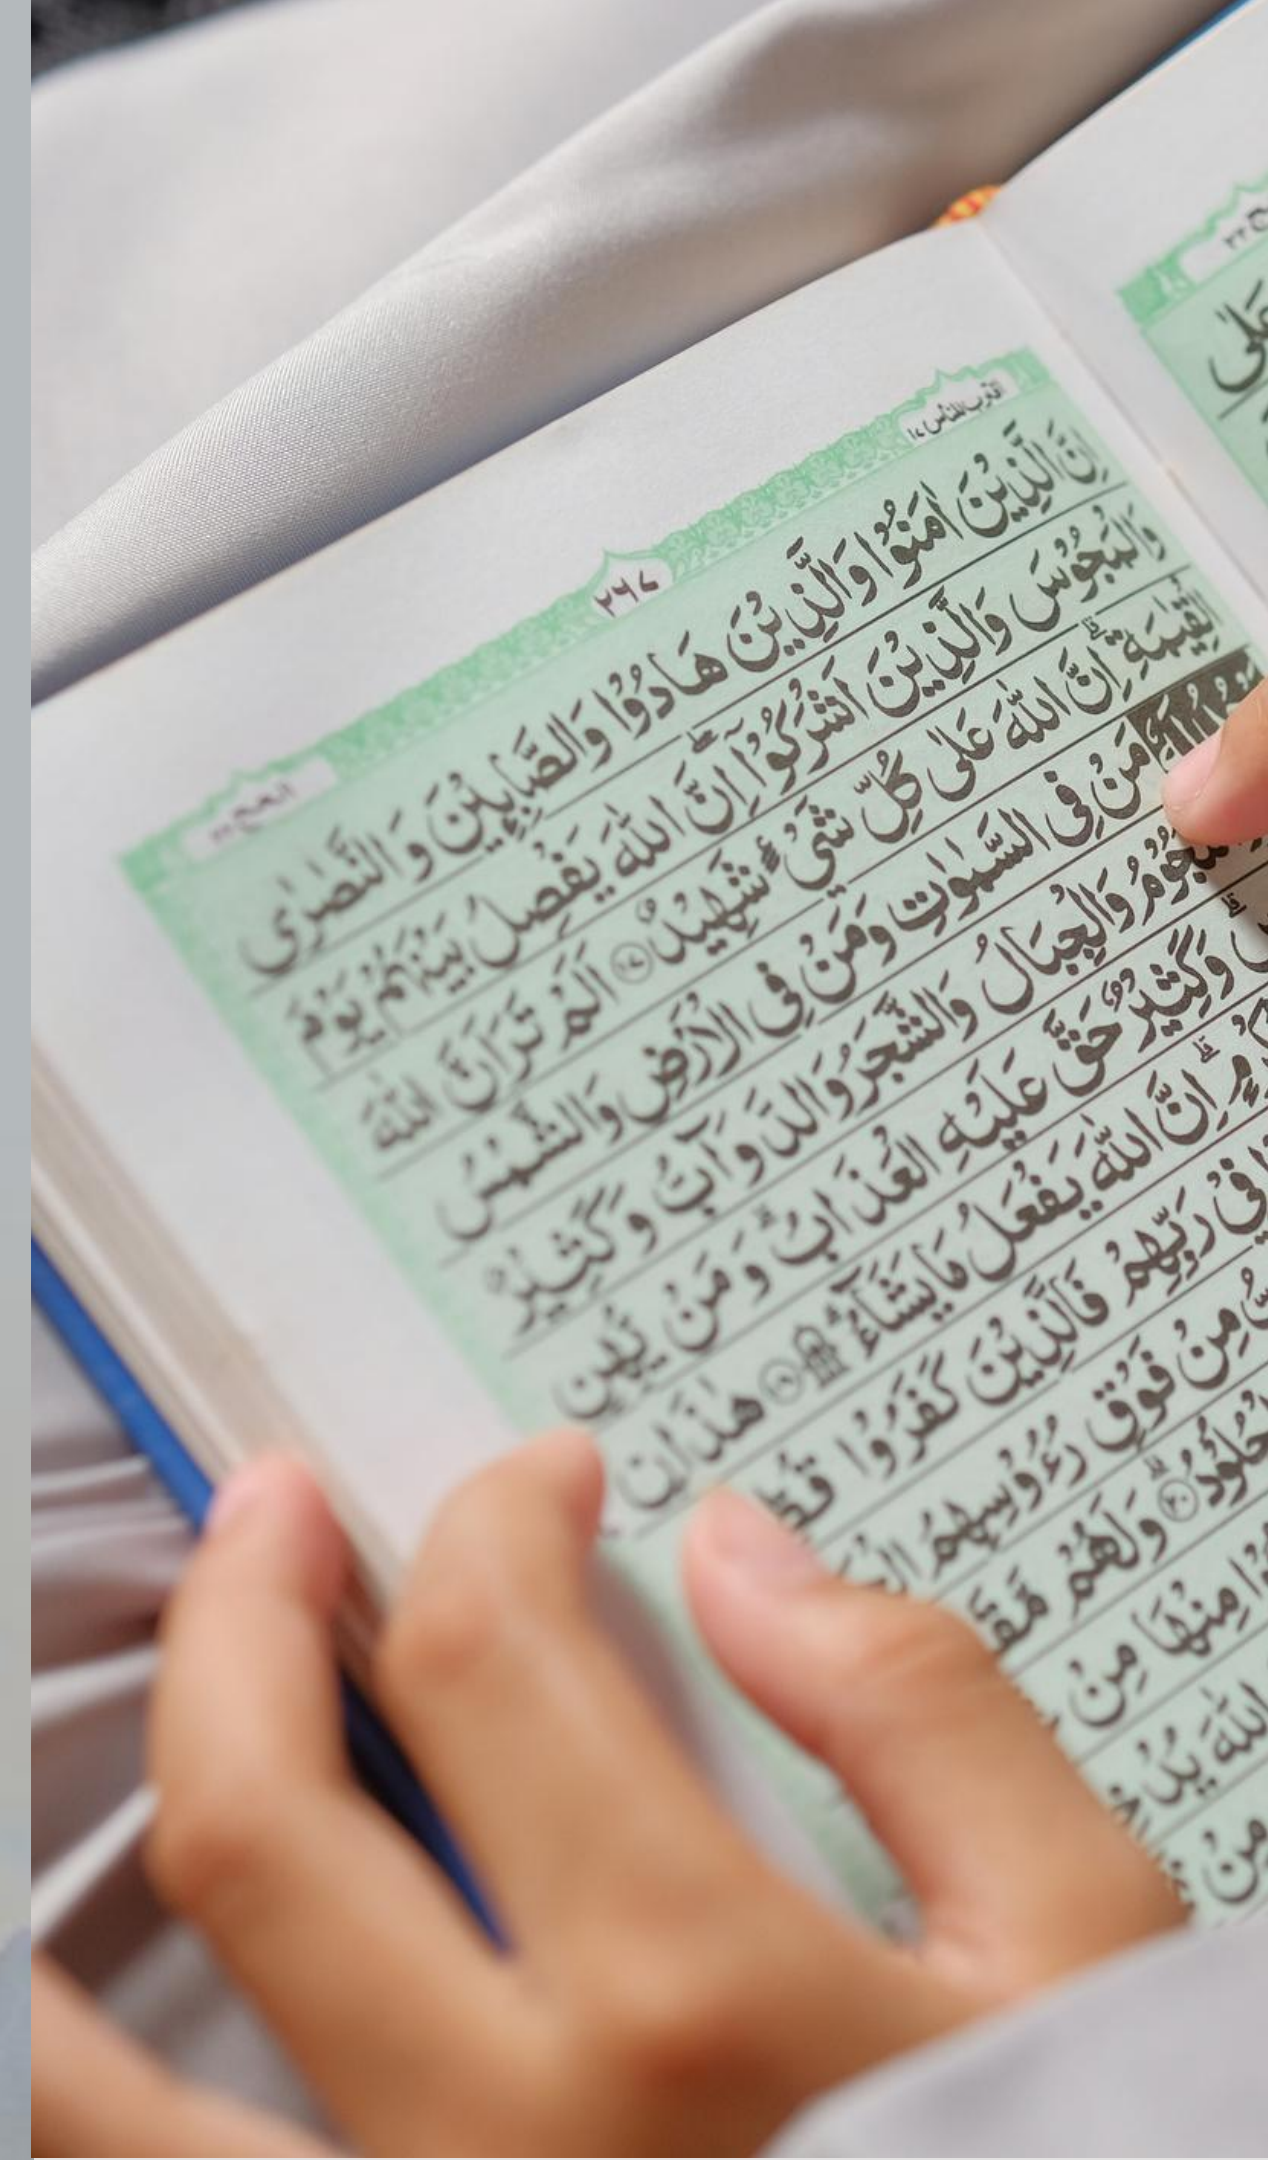 اقترب للناس ١٧
٢٦٧
الحج ٢٢
اِنَّ الَّذِيْنَ اٰمَنُوْا وَالَّذِيْنَ هَادُوْا وَالصَّابِـِٕيْنَ وَ النَّصٰرٰى
وَالْمَجُوْسَ وَالَّذِيْنَ اَشْرَكُوْۤا ۖۗ اِنَّ اللّٰهَ يَفْصِلُ بَيْنَهُمْ يَوْمَ
الْقِيٰمَةِ ؕ اِنَّ اللّٰهَ عَلٰى كُلِّ شَيْءٍ شَهِيْدٌ ﴿۱۷﴾ اَلَمْ تَرَ اَنَّ اللّٰهَ
مَنْ فِي السَّمٰوٰتِ وَمَنْ فِي الْاَرْضِ وَالشَّمْسُ
وَالْجِبَالُ وَالشَّجَرُ وَالدَّوَآبُّ وَكَثِيْرٌ
وَكَثِيْرٌ حَقَّ عَلَيْهِ الْعَذَابُ ؕ وَمَنْ يُّهِنِ
اِنَّ اللّٰهَ يَفْعَلُ مَا يَشَآءُ ۩ ﴿۱۸﴾ هٰذٰنِ
فِيْ رَبِّهِمْ فَالَّذِيْنَ كَفَرُوْا
مِنْ فَوْقِ رُءُوْسِهِمُ
﴿۲۰﴾ وَلَهُمْ
مِنْهَا مِنْ
اللّٰهَ
مِنْ
عَلٰى